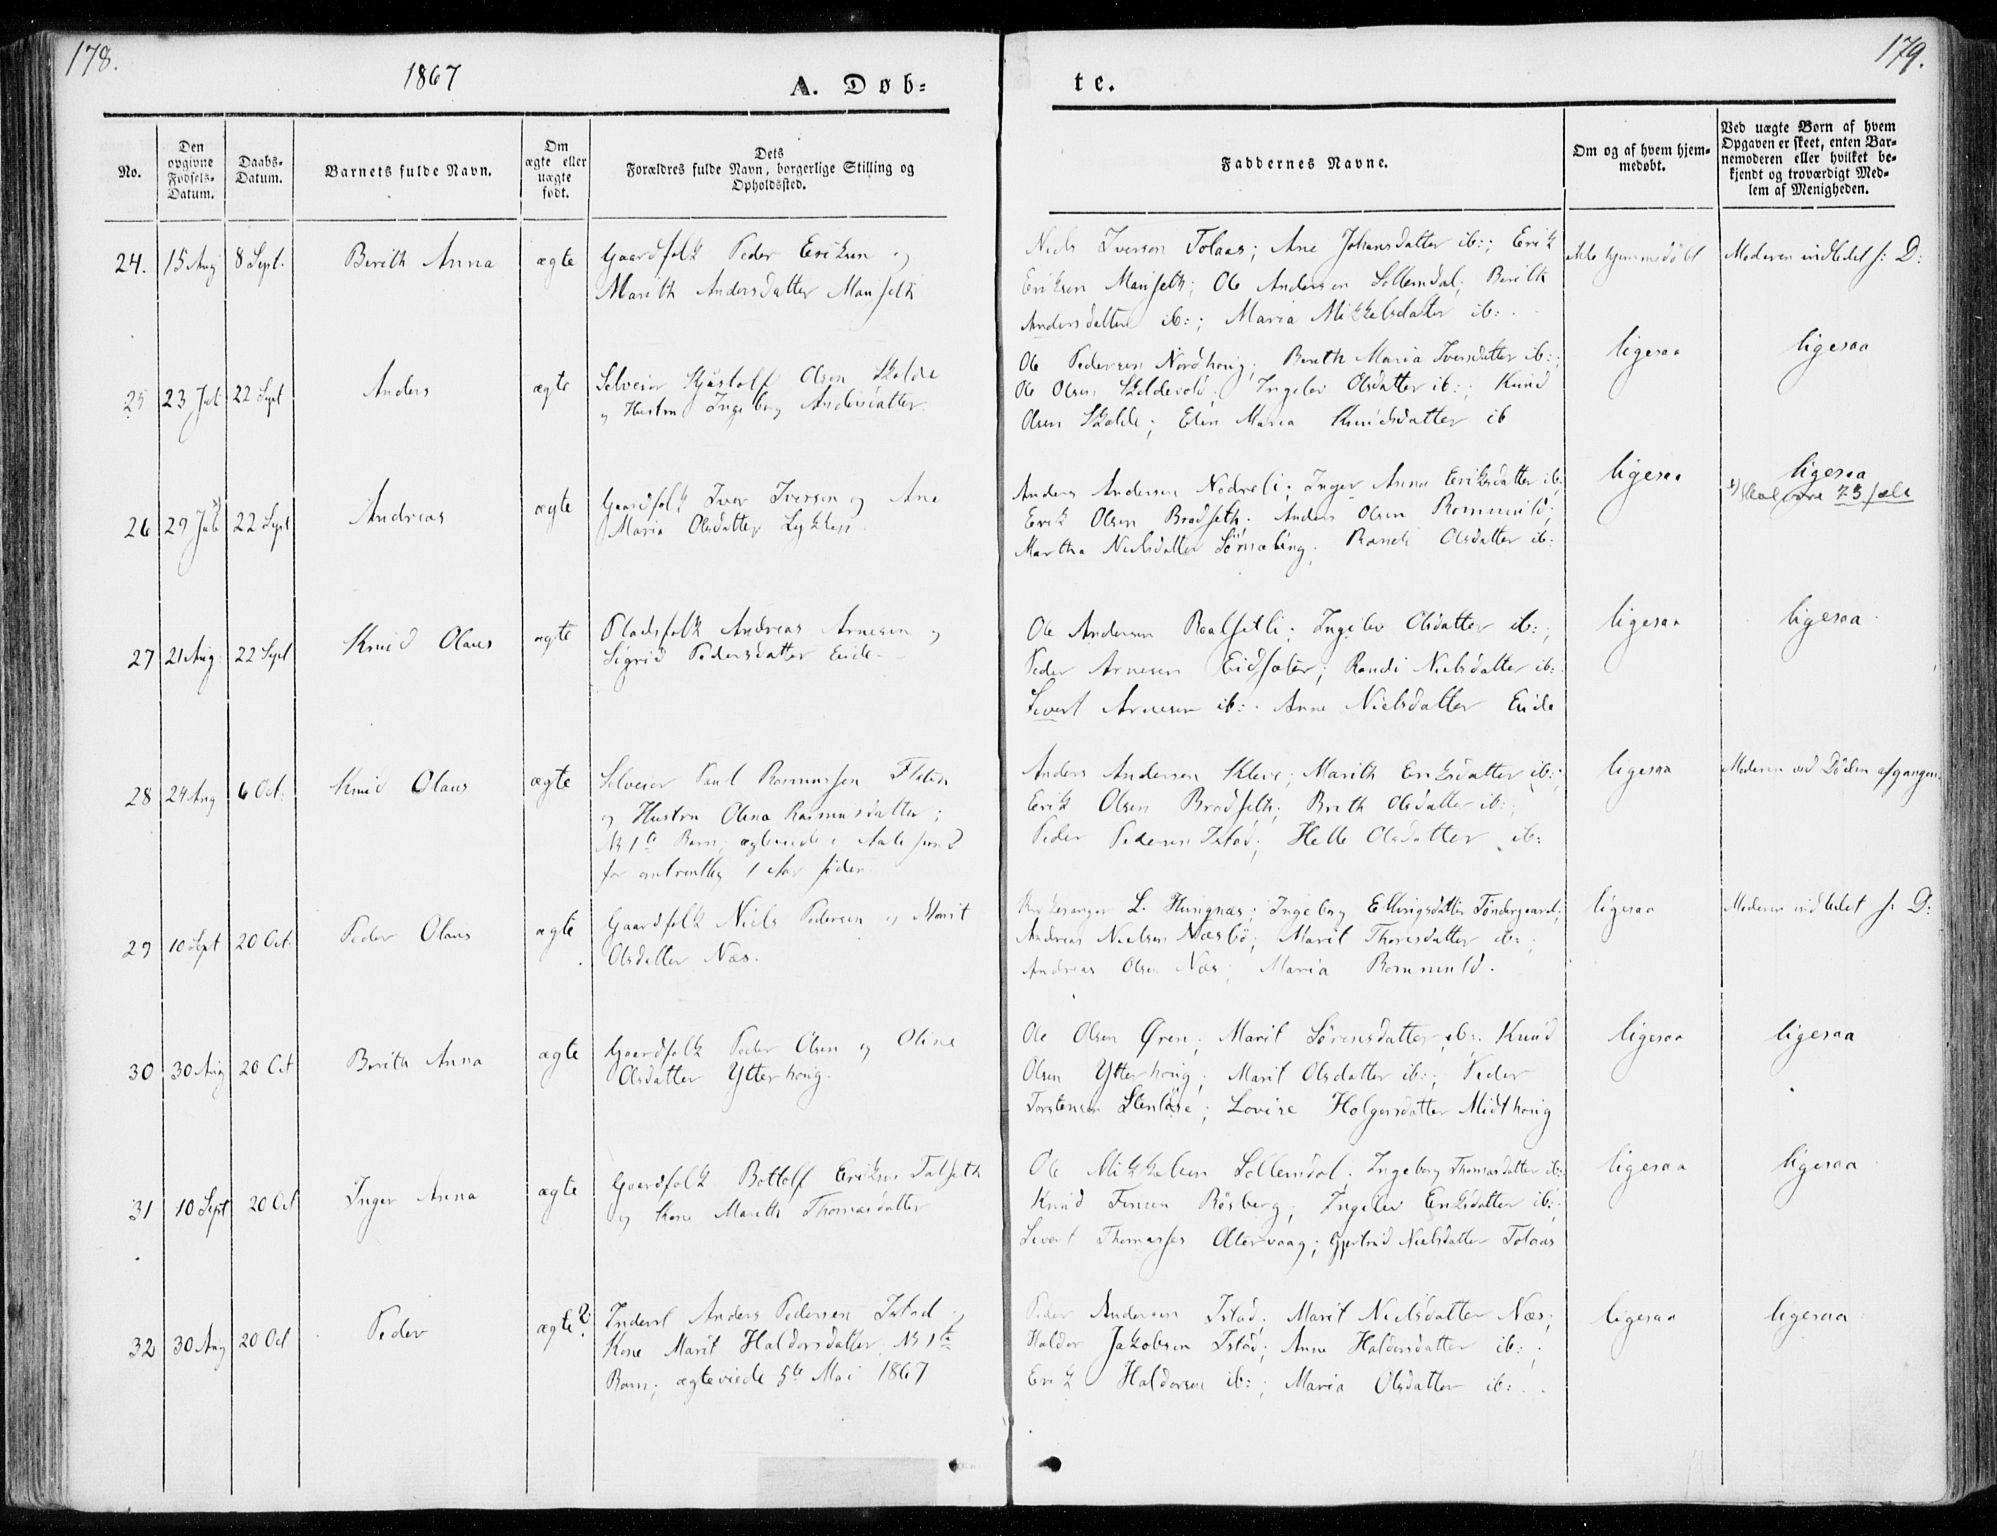 178.
1867
A. Døb-
te.
179.
No.
Den opgivne Fødsels-Datum.
Daabs-Datum.
Barnets fulde Navn.
Om ægte eller uægte født.
Dets
Forældres fulde Navn, borgerlige Stilling og
Opholdssted.
Faddernes Navne.
Om og af hvem hjem-
medøbt.
Ved uægte Børn af hvem
Opgaven er skeet, enten Bar-
nemoderen eller hvilket be-
kjendt og troværdigt Med-
lem af Menigheden.
24. 15 Aug 8 Sept. Berith Anna ægte
Gaardfolk Peder Eriksen og
Marith Andersdatter Manseth
Niels Iverson Tolaas; Ane Johansdatter ib:; Erik
Eriksen Manseth; Ole Andersen Sollemdal; Berith
Andersdatter ib:; Maria Mikkelsdatter ib:
ikke hjemmedøbt
Moderen indledet f: D:
25 23 Jul 22 Sept Anders ægte
Selveier Olsen Skolde
og Hustru Ingeborg Andersdatter
Ole Pedersen Nordhoug; Bereth Maria Iversdatter ib:;
Ole Olsen; Ingelev Olsdatter ib:; Knud
Olsen Skolde; Elen Maria Knudsdatter ib
ligesaa
ligesaa
26 29 Juli 22 Sept Andreas ægte
Gaardfolk Iver Iverson og Ane
Maria Olsdatter
Anders Andersen Nedreli; Inger Anna Eriksdatter ib;
Erik Olsen Bradseth; Anders Olsen Romuuld;
Martha Nielsdatter; Randi Olsdatter ib:
ligesaa
ligesaa
skal være 23 Juli
27 21 Aug: 22 Sept Knud Olaus ægte
Pladsfolk Andreas Arnesen og
Sigrid Pedersdatter Eide
Ole Andersen; Ingelev Olsdatter ib:;
Peder Arnesen Eidsæter; Randi Nielsdatter ib:
Sivert Arnesen ib:. Anne Nielsdatter Eide
ligesaa
ligesaa
28 24 Aug 6 Oct: Knud Olaus ægte
Selveier Paul Rasmussen
og Hustru Olena Rasmusdatter;
NB 1ste Barn, Aalesund
for omtrentlig 1 Aar siden
Anders Andersen Kleve; Marith Eriksdatter ib:;
Erik Olsen Bradseth; Brith Olsdatter ib:;
Peder Pedersen Istad; Helle Olsdatter ib:
ligesaa
Moderen ved Døden afgangen
29 10 Sept 20 Oct: Peder Olaus ægte
Gaardfolk Niels Pedersen og Marit
Olsdatter Næs.
Kirkesanger L. Hungnæs; Ingeborg Ellingsdatter Tøndergaard;
Andreas Nielsen Næsbø; Marit Thoresdatter ib:;
Andreas Olsen Næs; Maria Romuuld.
ligesaa
Moderen indledet f: D:
30 30 Aug 20 Oct Berith Anna ægte
Gaardfolk Peder Olsen og Oline
Olsdatter Ytterhoug.
Ole Olsen Øren; Marit Sørensdatter ib:. Knud
Olsen Ytterhoug; Marit Olsdatter ib:; Peder
Torstensen; Lovise Holgersdatter Midthoug
ligesaa
ligesaa
31 10 Sept 20 Oct Inger Anna ægte
Gaardfolk Bottolf Eriksen Talseth
og Kone Marith Thomasdatter
Ole Mikkelsen Sollemdal; Ingeborg Thomasdatter ib:
Knud Finsen Røsberg; Ingelev Eriksdatter ib:
Sivert Thomassen Atervaag; Gjertrud Nielsdatter Tolaas
ligesaa
ligesaa
32 30 Aug 20 Oct Peder ægte
Inderst Anders Pedersen Istad og
Kone Marit Haldorsdatter, NB 1ste
Barn; ægteviede 5te Mai 1867
Peder Andersen Istad; Marit Nielsdatter Næs;
Haldor Jakobsen Istad; Anne Haldorsdatter ib:;
Erik Haldorsen ib:; Maria Olsdatter ib:.
ligesaa
ligesaa